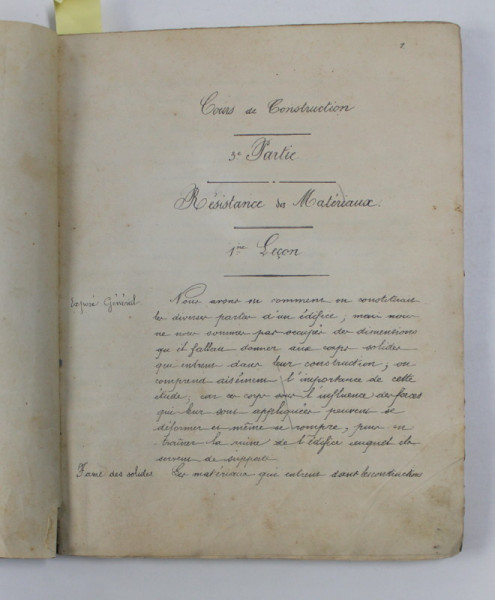 Cours de Construction
3e Partie
Résistance des Matériaux.
1ère Leçon
Exposé Général
Nous avons vu comment on constituait
les diverses parties d'un édifice ; mais nous
ne nous sommes pas occupés des dimensions
qu'il fallait donner aux corps solides
qui entrent dans leur construction ; on
comprend aisément l'importance de cette
étude, car ce corps sous l'influence des forces
qui leur sont appliquées peuvent se
déformer et même se rompre, puis en
traîner la ruine de l'édifice auquel ils
servent de support.
Forme des solides Les matériaux qui entrent dans les constructions